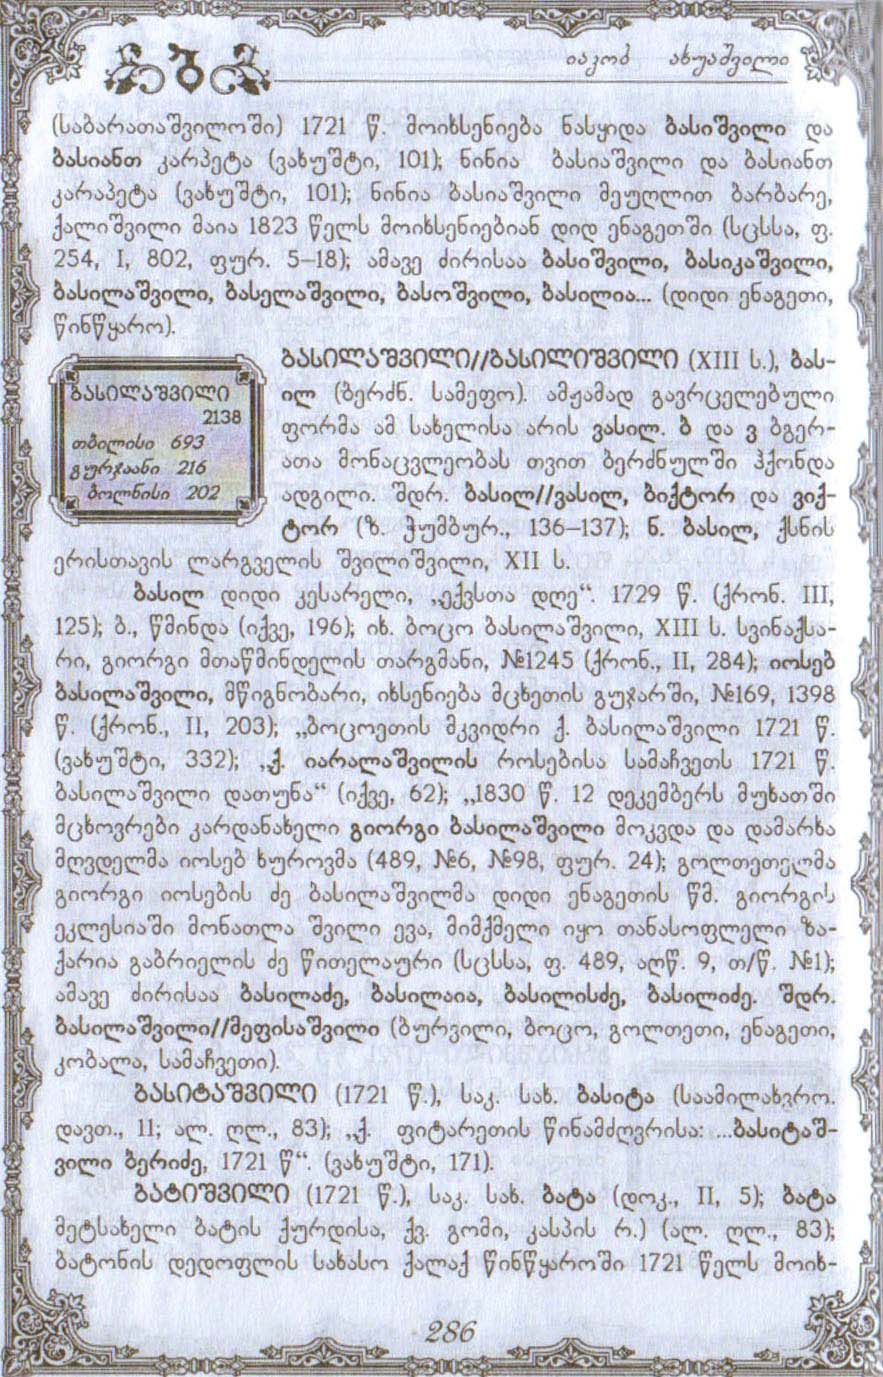 იაკობ ახუაშვილი
(საბარათაშვილოში) 1721 წ. მოიხსენიება ნასყიდა ბასიშვილი და
ბასიანთ კარპეტა (ვახუშტი, 101); ნინია ბასიაშვილი და ბასიანთ
კარაპეტა (ვახუშტი, 101); ნინია ბასიაშვილი მეუღლით ბარბარე,
ქალიშვილი მაია 1823 წელს მოიხსენიებიან დიდ ენაგეთში (სცსსა, ფ.
254, I, 802, ფურ. 5–18); ამავე ძირისაა ბასიშვილი, ბასიკაშვილი,
ბასილაშვილი, ბასელაშვილი, ბასოშვილი, ბასილია... (დიდი ენაგეთი,
წინწყარო).
ბასილაშვილი//ბასილიშვილი (XIII ს.), ბას-
ილ (ბერძნ. სამეფო). ამჟამად გავრცელებული
ფორმა ამ სახელისა არის ვასილ. ბ და ვ ბგერ-
ათა მონაცვლეობას თვით ბერძნულში ჰქონდა
ადგილი. შდრ. ბასილ//ვასილ, ბიქტორ და ვიქ-
ტორ (ზ. ჭუმბურ., 136–137); ნ. ბასილ, ქსნის
ბასილაშვილი
2138
თბილისი 693
გურჯაანი 216
ბოლნისი 202
ერისთავის ლარგველის შვილიშვილი, XII ს.
ბასილ დიდი კესარელი, „ექვსთა დღე“. 1729 წ. (ქრონ. III,
125); ბ., წმინდა (იქვე, 196); იხ. ბოცო ბასილაშვილი, XIII ს. სვინაქსა-
რი, გიორგი მთაწმინდელის თარგმანი, №1245 (ქრონ., II, 284); იოსებ
ბასილაშვილი, მწიგნობარი, იხსენიება მცხეთის გუჯარში, №169, 1398
წ. (ქრონ., II, 203); „ბოცოეთის მკვიდრი ქ. ბასილაშვილი 1721 წ.
(ვახუშტი, 332); „ქ. იარალაშვილის როსებისა სამაჩვეთს 1721 წ.
ბასილაშვილი დათუნა“ (იქვე, 62); „1830 წ. 12 დეკემბერს მუხათში
მცხოვრები კარდანახელი გიორგი ბასილაშვილი მოკვდა და დამარხა
მღვდელმა იოსებ ხუროვმა (489, №6, №98, ფურ. 24); გოლთეთელმა
გიორგი იოსების ძე ბასილაშვილმა დიდი ენაგეთის წმ. გიორგის
ეკლესიაში მონათლა შვილი ევა, მიმქმელი იყო თანასოფლელი ზა-
ქარია გაბრიელის ძე წითელაური (სცსსა, ფ. 489, აღწ. 9, თ/წ. №1);
ამავე ძირისაა ბასილაძე, ბასილაია, ბასილისძე, ბასილიძე. შდრ.
ბასილაშვილი//მეფისაშვილი (ბურვილი, ბოცო, გოლთეთი, ენაგეთი,
კობალა, სამაჩვეთი).
ბასიტაშვილი (1721 წ.), საკ. სახ. ბასიტა (საამილახვრო.
დავთ., 11; ალ. ღლ., 83); „ქ. ფიტარეთის წინამძღვრისა: ...ბასიტაშ-
ვილი ბერიძე, 1721 წ“. (ვახუშტი, 171).
ბატიშვილი (1721 წ.), საკ. სახ. ბატა (დოკ., II, 5); ბატა
მეტსახელი ბატის ქურდისა, ქვ. გომი, კასპის რ.) (ალ. ღლ., 83);
ბატონის დედოფლის სახასო ქალაქ წინწყაროში 1721 წელს მოიხ-
286